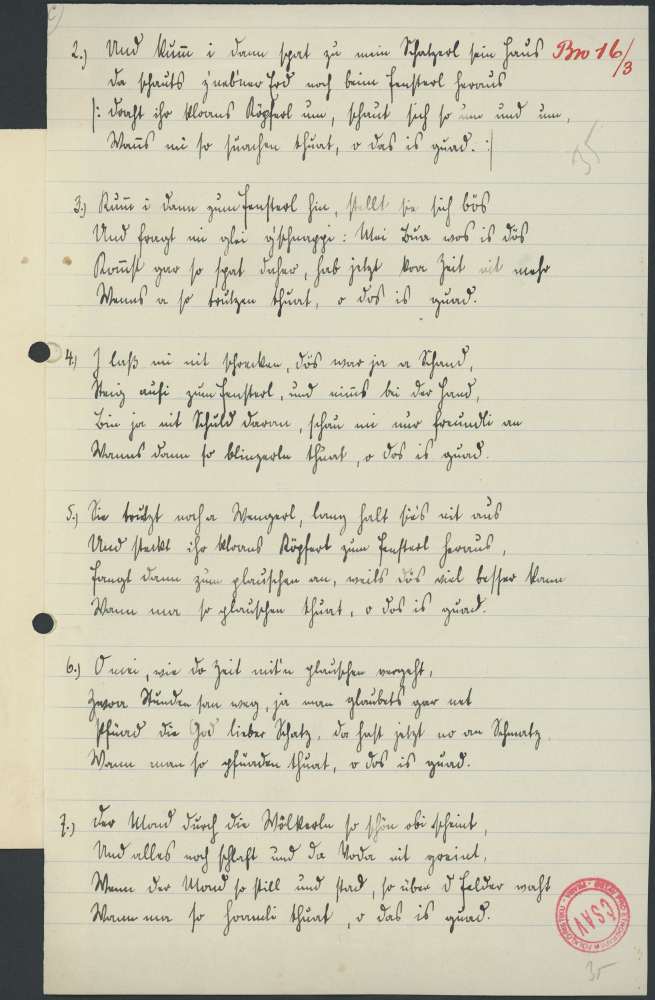 2.) Und kumm i dann spat zu mein Schatzerl sein Haus
Bro 16/3
Da schauts z'nebner Erd noch beim Fensterl heraus
|: Draht ihr kloans Köpferl um, schaut sich so um und um,
Wanns mi so suachen thuat, o das is guad. :|
3.) Kumm i dann zum Fensterl hin, stellt sie sich bös
Und fragt mi glei g'schnappi: Mei Bua wos is dös
Kommst gar so spat daher, hab jetzt koa Zeit nit mehr
Wenns a so trutzen thuat, o dos is guad.
4.) I laß mi nit schrecken, dös war ja a Schand,
Steig aufi zum Fensterl, und nimms bei der Hand,
Bin ja nit Schuld daran, schau mi nur freundli an
Wanns dann so blinzerln thuat, o dos is guad.
5.) Sie trutzt noch a Wengerl, lang halt sie's nit aus
Und steckt ihr kloans Köpferl zum Fensterl heraus,
Fangt dann zum plauschen an, weils dös viel besser kann
Wann ma so plauschen thuat, o dos is guad.
6.) O mei, wie do Zeit mit'n plauschen vergeht,
Zwoa Stunden san weg, ja man glaubets gar net
Pfüad die God lieber Schatz, da hast jetzt no an Schmatz
Wann man so pfüaden thuat, o dos is guad.
7.) Der Mond durch die Wölkerln so schön obi scheint,
Und alles noch schlaft und da Voda nit greint,
Wenn der Mond so still und stad, so über d Felder waht
Wann ma so hoamli thuat, o das is guad.
ČSAV
35